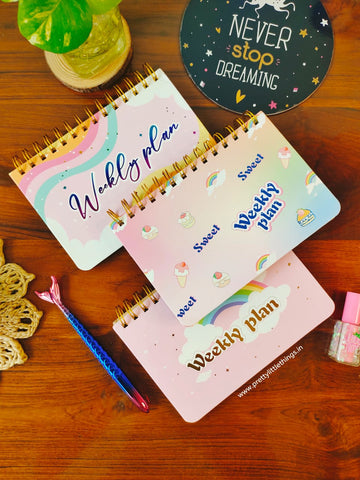 NEVER
stop
DREAMING
Weekly plan
Sweet
Sweet
Weekly
plan
Sweet
Weekly plan
www.prettylittlethings.in